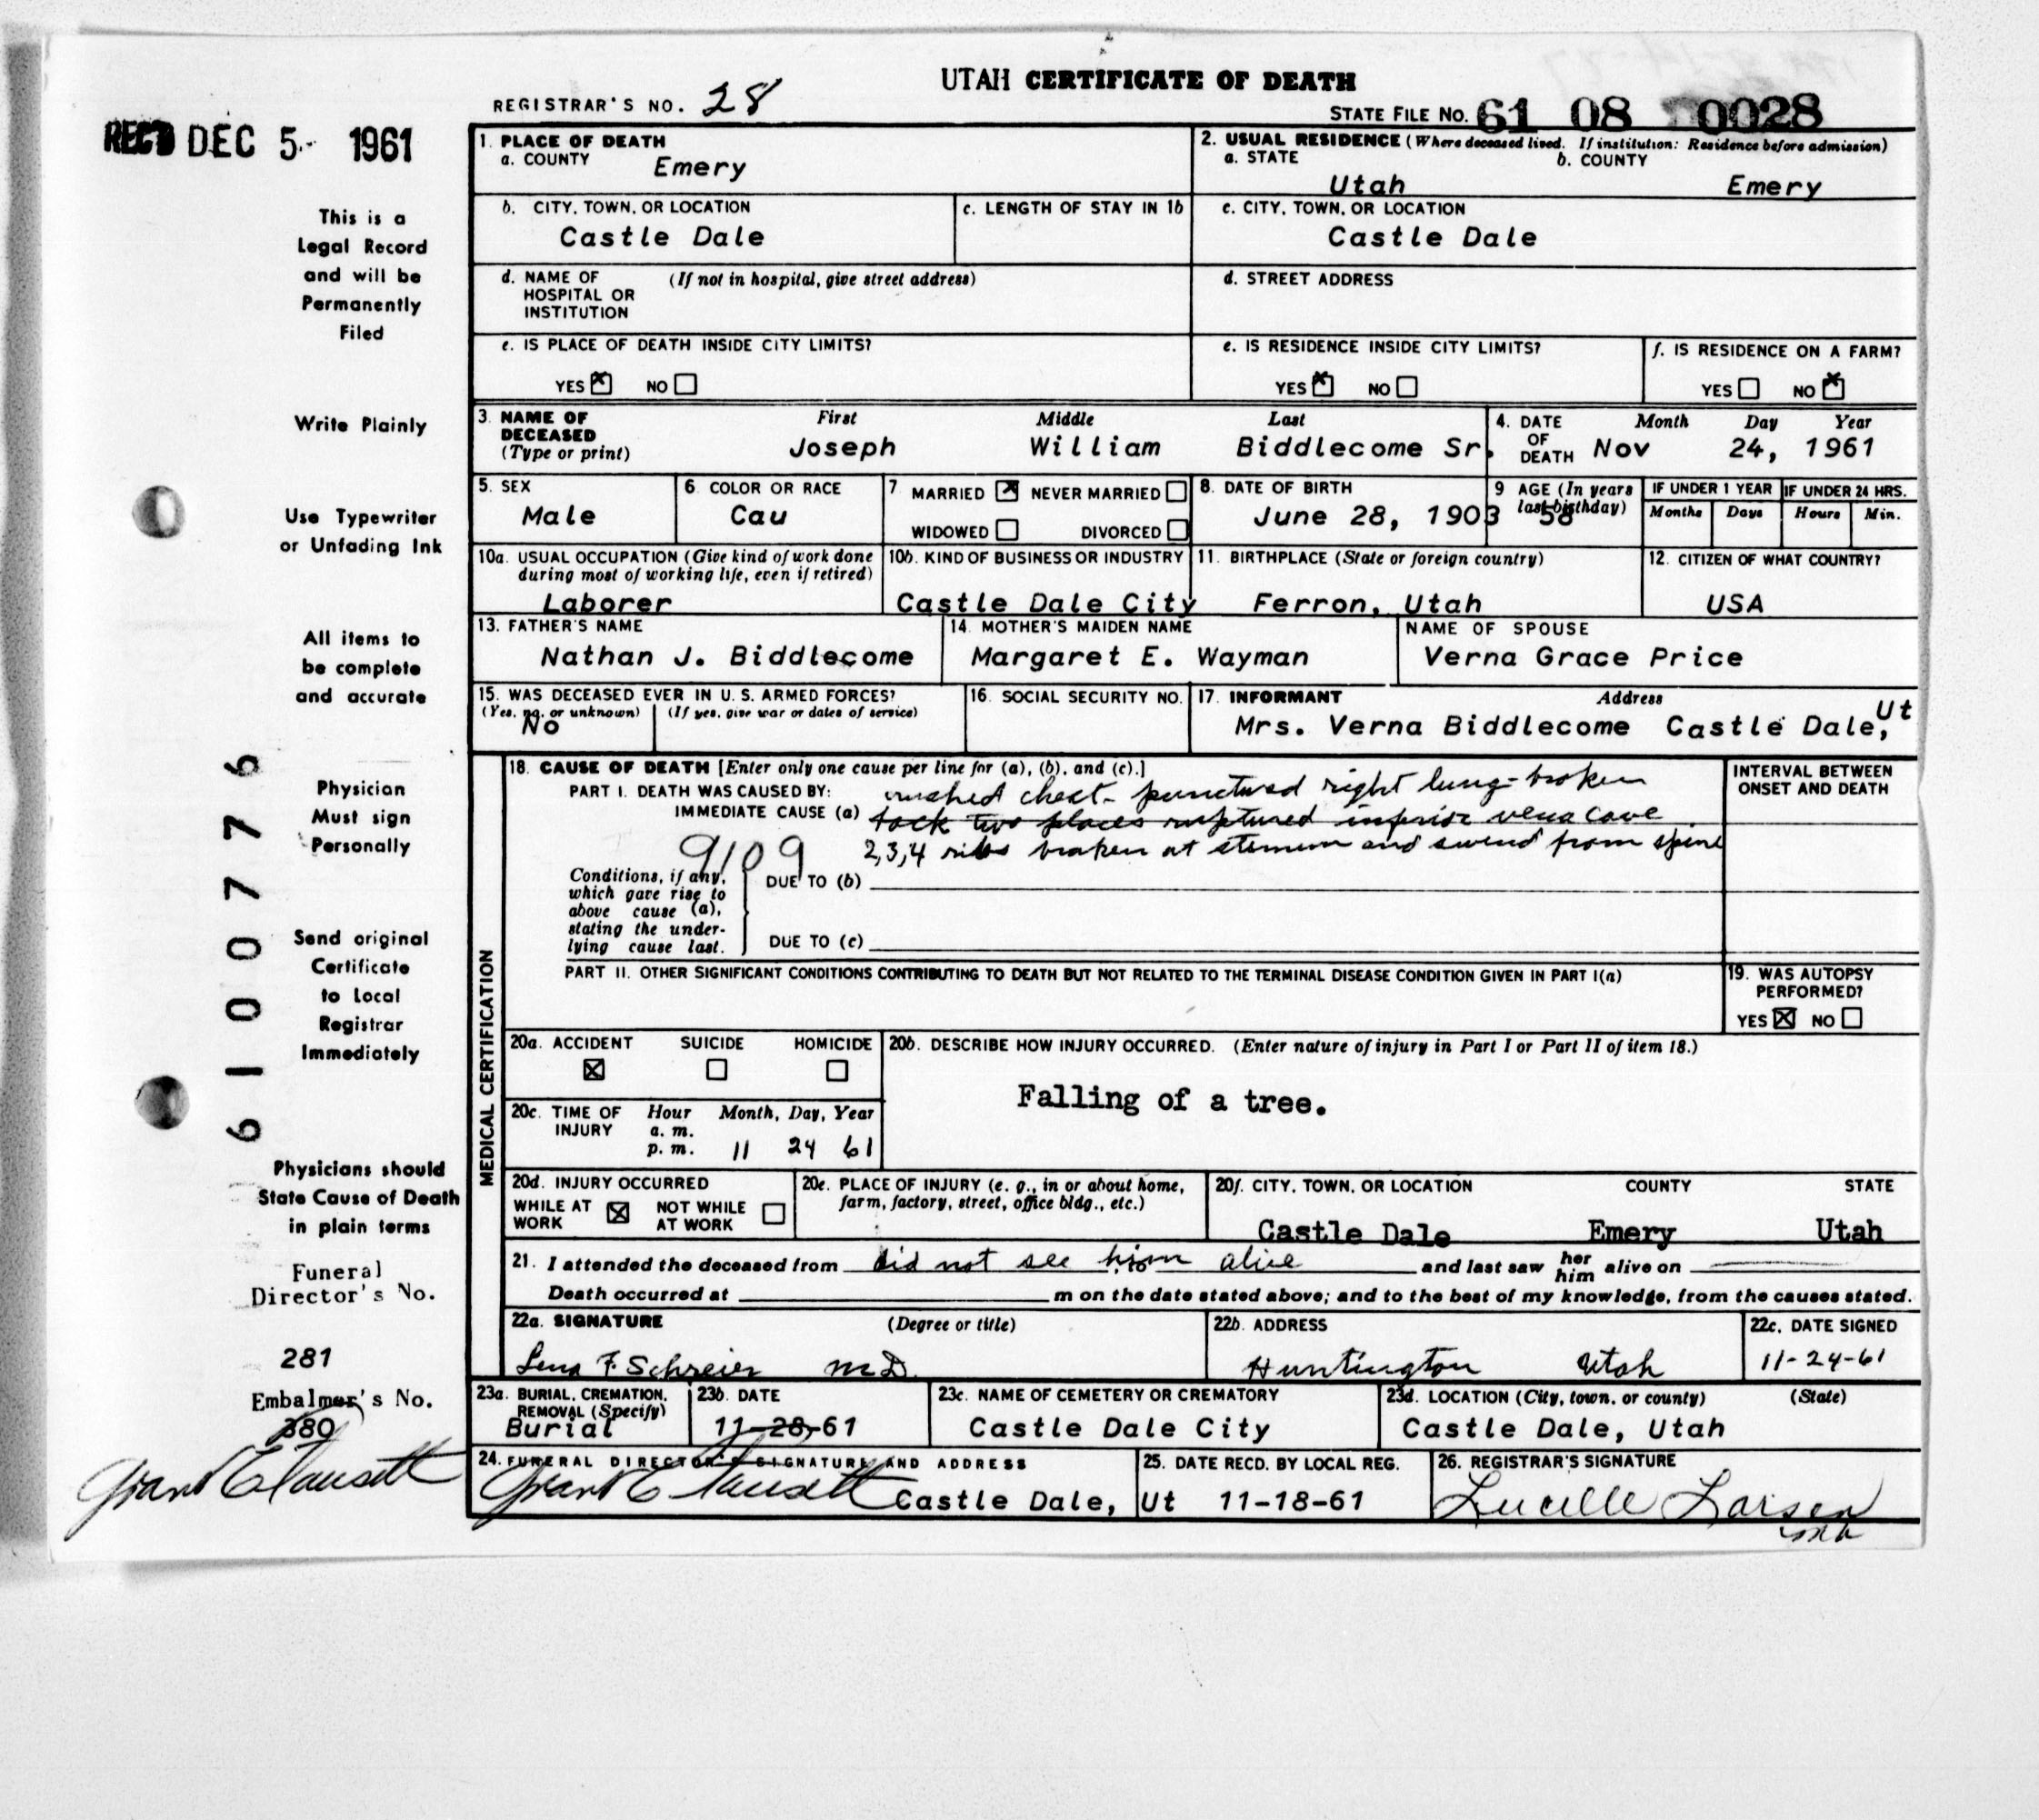 UTAH CERTIFICATE OF DEATH
REGISTRAR'S NO. 28
STATE FILE NO. 61 08 0028
REC'D DEC 5 1961
This is a
Legal Record
and will be
Permanently
Filed
Write Plainly
Use Typewriter
or Unfading Ink
All items to
be complete
and accurate
Physician
Must sign
Personally
Send original
Certificate
to Local
Registrar
Immediately
Physicians should
State Cause of Death
in plain terms
Funeral
Director's No.
281
Embalmer's No.
380
Grant E Fausett
6100776
1. PLACE OF DEATH
a. COUNTY Emery
2. USUAL RESIDENCE (Where deceased lived. If institution: Residence before admission)
a. STATE b. COUNTY
Utah Emery
b. CITY, TOWN, OR LOCATION
Castle Dale
c. LENGTH OF STAY IN 1b
c. CITY, TOWN, OR LOCATION
Castle Dale
d. NAME OF (If not in hospital, give street address)
HOSPITAL OR
INSTITUTION
d. STREET ADDRESS
e. IS PLACE OF DEATH INSIDE CITY LIMITS?
YES NO
e. IS RESIDENCE INSIDE CITY LIMITS?
YES NO
f. IS RESIDENCE ON A FARM?
YES NO
3. NAME OF First Middle Last
DECEASED
(Type or print) Joseph William Biddlecome Sr.
4. DATE Month Day Year
OF
DEATH Nov 24, 1961
5. SEX
Male
6. COLOR OR RACE
Cau
7 MARRIED NEVER MARRIED
WIDOWED DIVORCED
8. DATE OF BIRTH
June 28, 1903
9 AGE (In years
last birthday)
58
IF UNDER 1 YEAR IF UNDER 24 HRS.
Months Days Hours Min.
10a. USUAL OCCUPATION (Give kind of work done
during most of working life, even if retired)
Laborer
10b. KIND OF BUSINESS OR INDUSTRY
Castle Dale City
11. BIRTHPLACE (State or foreign country)
Ferron, Utah
12. CITIZEN OF WHAT COUNTRY?
USA
13. FATHER'S NAME
Nathan J. Biddlecome
14. MOTHER'S MAIDEN NAME
Margaret E. Wayman
NAME OF SPOUSE
Verna Grace Price
15. WAS DECEASED EVER IN U. S. ARMED FORCES?
(Yes, no, or unknown) (If yes, give war or dates of service)
No
16. SOCIAL SECURITY NO.
17. INFORMANT Address
Mrs. Verna Biddlecome Castle Dale, Ut
MEDICAL CERTIFICATION
18. CAUSE OF DEATH [Enter only one cause per line for (a), (b), and (c).]
PART I. DEATH WAS CAUSED BY: crushed chest - punctured right lung - broken
IMMEDIATE CAUSE (a) two places ruptured inferior vena cave
2,3,4 ribs broken at sternum and from spine
9109
INTERVAL BETWEEN
ONSET AND DEATH
Conditions, if any,
which gave rise to
above cause (a),
stating the under-
lying cause last.
DUE TO (b)
DUE TO (c)
PART II. OTHER SIGNIFICANT CONDITIONS CONTRIBUTING TO DEATH BUT NOT RELATED TO THE TERMINAL DISEASE CONDITION GIVEN IN PART I(a)
19. WAS AUTOPSY
PERFORMED?
YES NO
20a. ACCIDENT SUICIDE HOMICIDE
20b. DESCRIBE HOW INJURY OCCURRED. (Enter nature of injury in Part I or Part II of item 18.)
Falling of a tree.
20c. TIME OF Hour Month, Day, Year
INJURY a. m.
p. m. 11 24 61
20d. INJURY OCCURRED
WHILE AT NOT WHILE
WORK AT WORK
20e. PLACE OF INJURY (e. g., in or about home,
farm, factory, street, office bldg., etc.)
20f. CITY, TOWN, OR LOCATION COUNTY STATE
Castle Dale Emery Utah
21. I attended the deceased from did not see him alive and last saw her him alive on
Death occurred at m on the date stated above; and to the best of my knowledge, from the causes stated.
22a. SIGNATURE (Degree or title)
Lena F. Schreier M.D.
22b. ADDRESS
Huntington Utah
22c. DATE SIGNED
11-24-61
23a. BURIAL, CREMATION,
REMOVAL (Specify)
Burial
23b. DATE
11-28-61
23c. NAME OF CEMETERY OR CREMATORY
Castle Dale City
23d. LOCATION (City, town, or county) (State)
Castle Dale, Utah
24. FUNERAL DIRECTOR'S SIGNATURE AND ADDRESS
Grant E Fausett Castle Dale, Ut
25. DATE RECD. BY LOCAL REG.
11-18-61
26. REGISTRAR'S SIGNATURE
Lucille Larsen